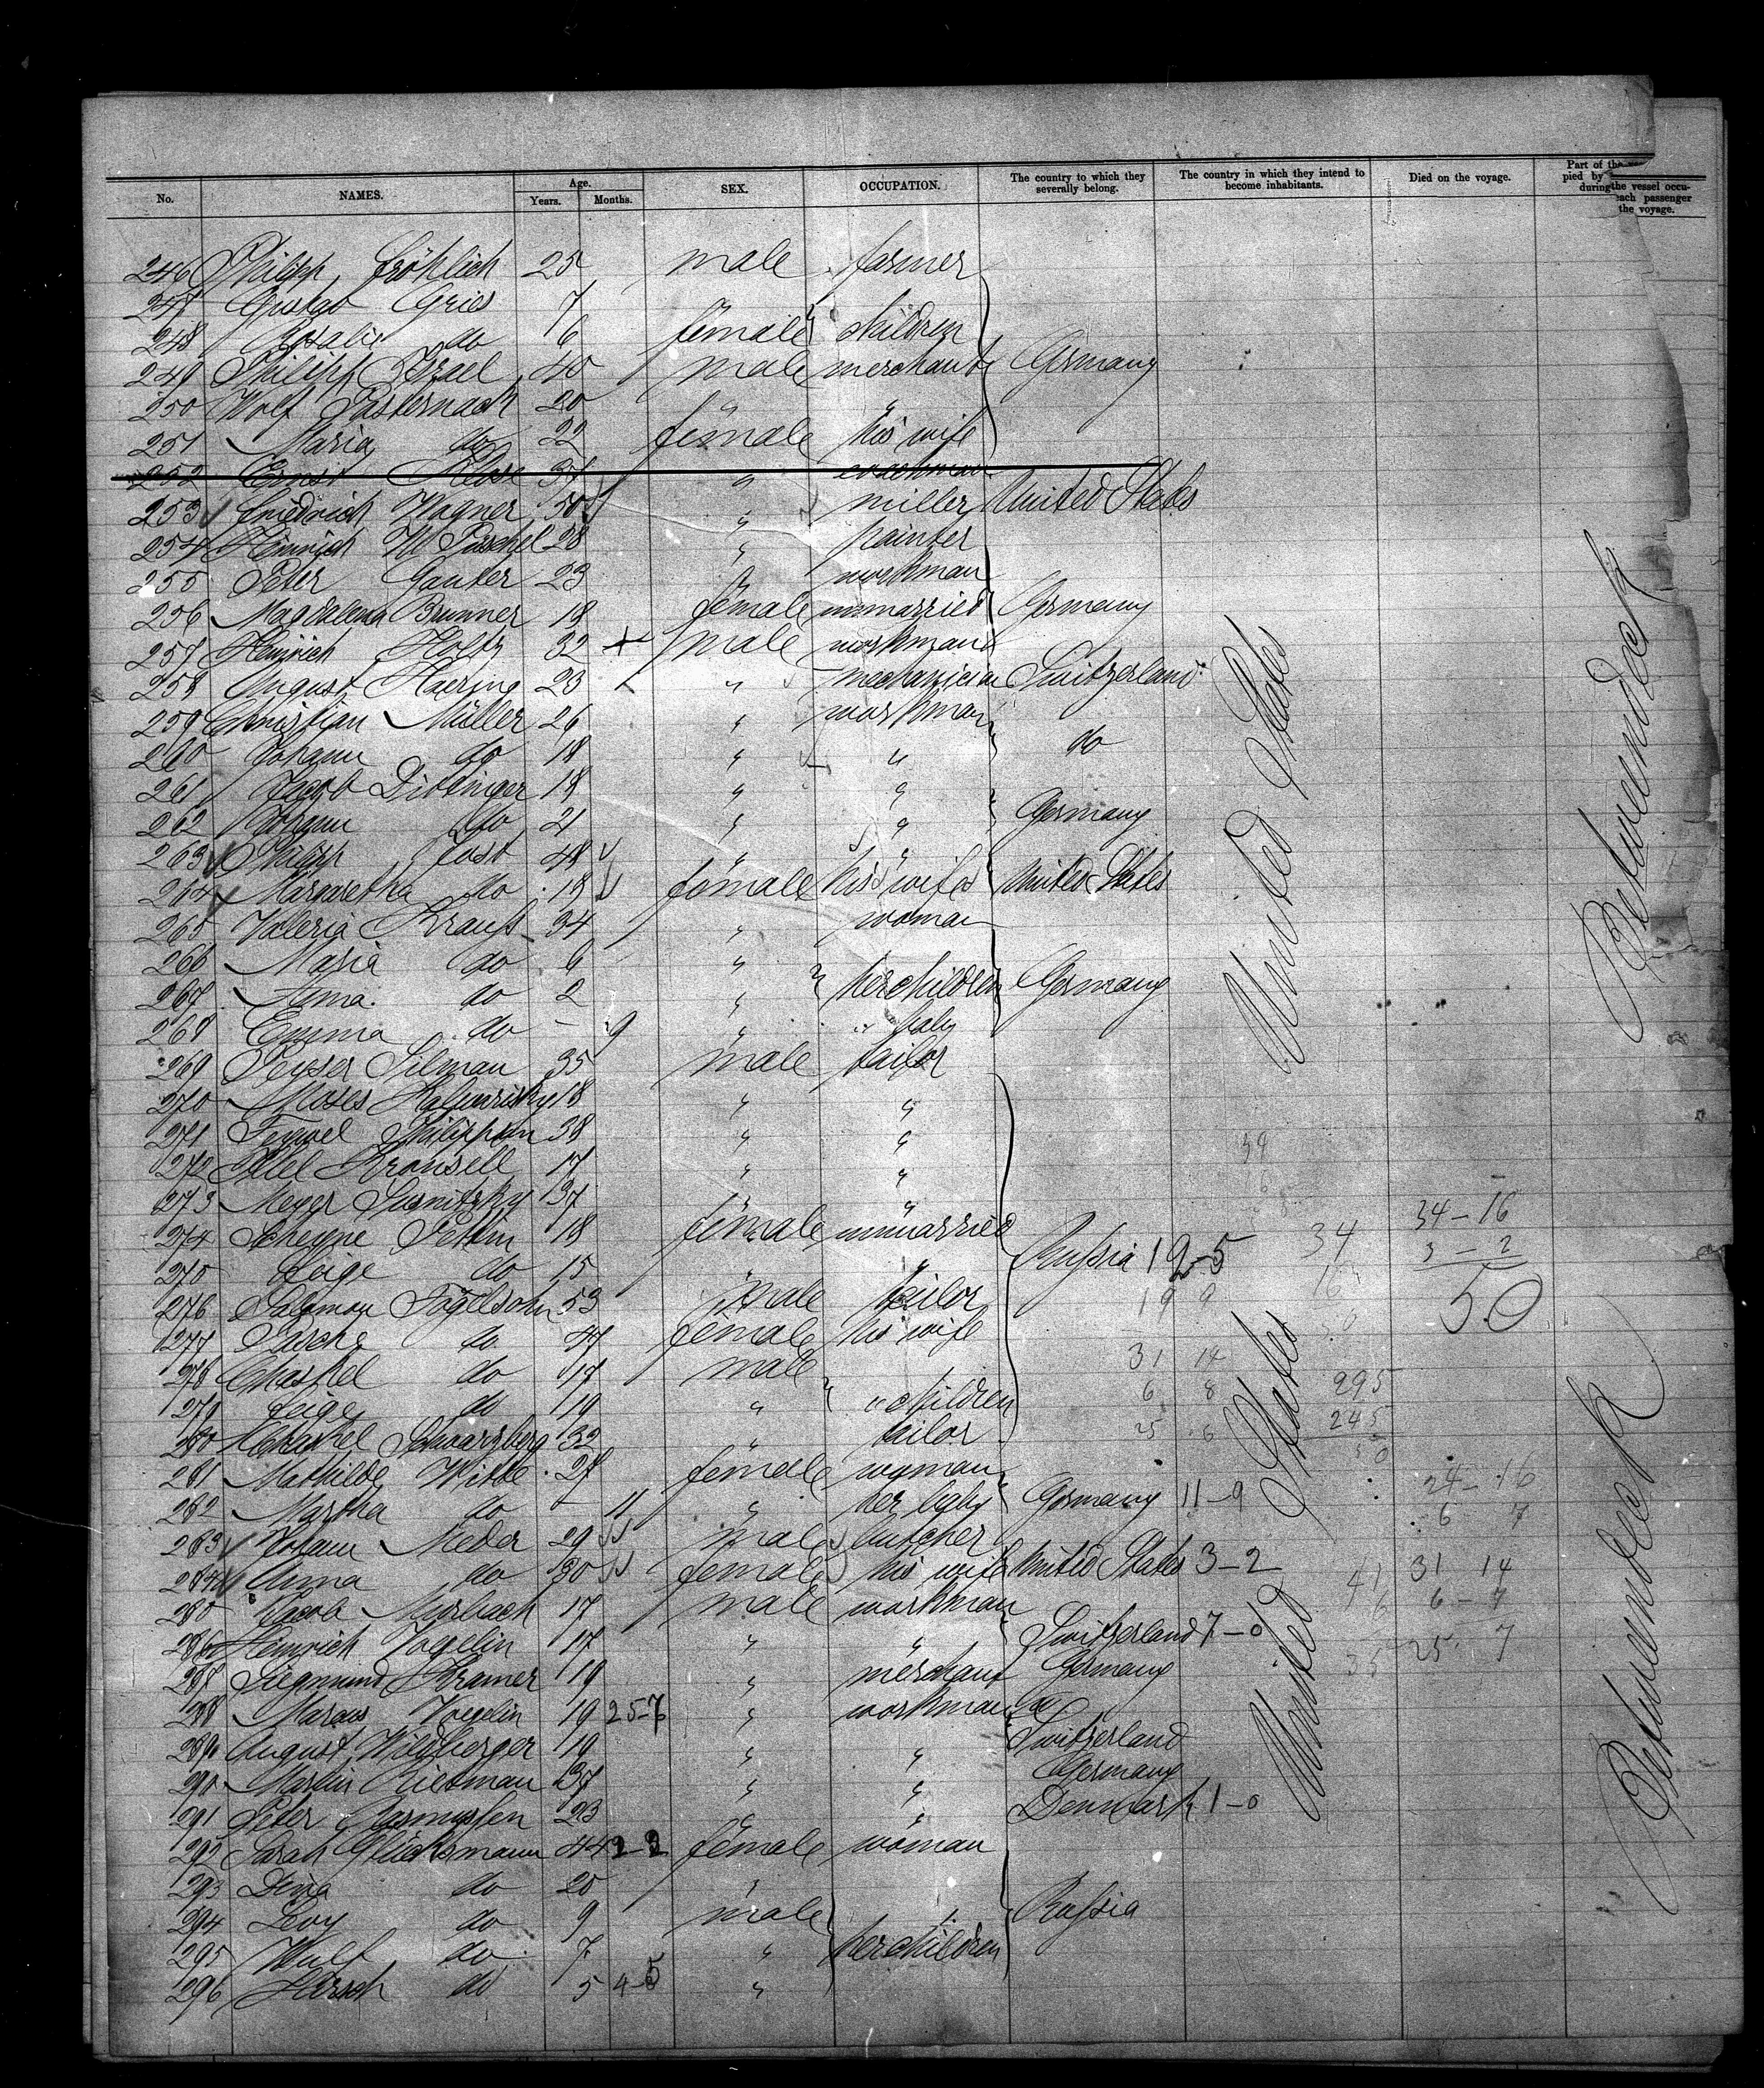 No. NAMES. Age. Years. Months. SEX. OCCUPATION. The country to which they severally belong. The country in which they intend to become inhabitants. Died on the voyage. Part of the vessel occupied by each passenger during the voyage.
246 Philipp Fröhlich 25 male farmer
247 Gustav Gries 7
248 Rosalie do 6 female children
249 Philipp Israel 40 male merchant Germany
250 Wolf Pasternack 20 " "
251 Maria do 22 female his wife
252 Ernst Klose 37 " coachman
253 Friedrich Wagner 50 " miller United States
254 Heinrich W Püschel 28 " painter
255 Peter Ganter 23 " workman
256 Magdalena Brunner 18 female unmarried Germany
257 Heinrich Holtz 32 male workman
258 August Haering 23 " mechanician Switzerland
259 Christian Müller 26 " workman
260 Johann do 18 " " do
261 Jacob Dittinger 18 " "
262 Johann do 21 " " Germany
263 Philipp Jost 48 " "
264 Margaretha do 18 female his wife United States
265 Valeria Krauß 34 " woman
266 Maria do 6 "
267 Anna do 2 " her children Germany
268 Emma do - 9 " " baby
269 Peyser Silman 35 male tailor
270 Moses 18 " "
271 Philippson 38 " "
272 Abel Kronsell 17 " "
273 Meyer Susnitzky 37 "
274 Scheyne Pettin 18 female unmarried
275 Feige do 15 " " Russia 12-5
276 Salomon Fogelsohn 53 male tailor
277 Sasche do 47 female his wife
278 Chaskel do 17 male
279 Feige do 19 " " children
280 Chaskel Schwarzberg 32 " tailor
281 Mathilde Witte 27 female woman
282 Martha do - 11 " her baby Germany 11-9
283 Johann Meder 29 male butcher
284 Anna do 30 female his wife United States 3-2
285 Jacob Murbach 17 male workman
286 Heinrich Vogelin 17 " " Switzerland 7-0
287 Siegmund Kramer 19 " merchant Germany
288 Marcus Voegelin 19 25-7 " workman
289 August Wildberger 19 " " Switzerland
290 Martin Rietman 37 " " Germany
291 Peter Rasmussen 23 " " Denmark 1-0
292 Sarah Glücksmann 44 2-2 female woman
293 Dina do 20 "
294 Levy do 9 male Russia
295 Wulf do 7 " her children
296 Hirsch do 5 4-5 "
United States
United States
Betweendeck
Betweendeck
34-16
3-2
50
34
16
19 9
31 14
6 8
25 6
295
245
50
24-16
6 7
31 14
6-7
25 7